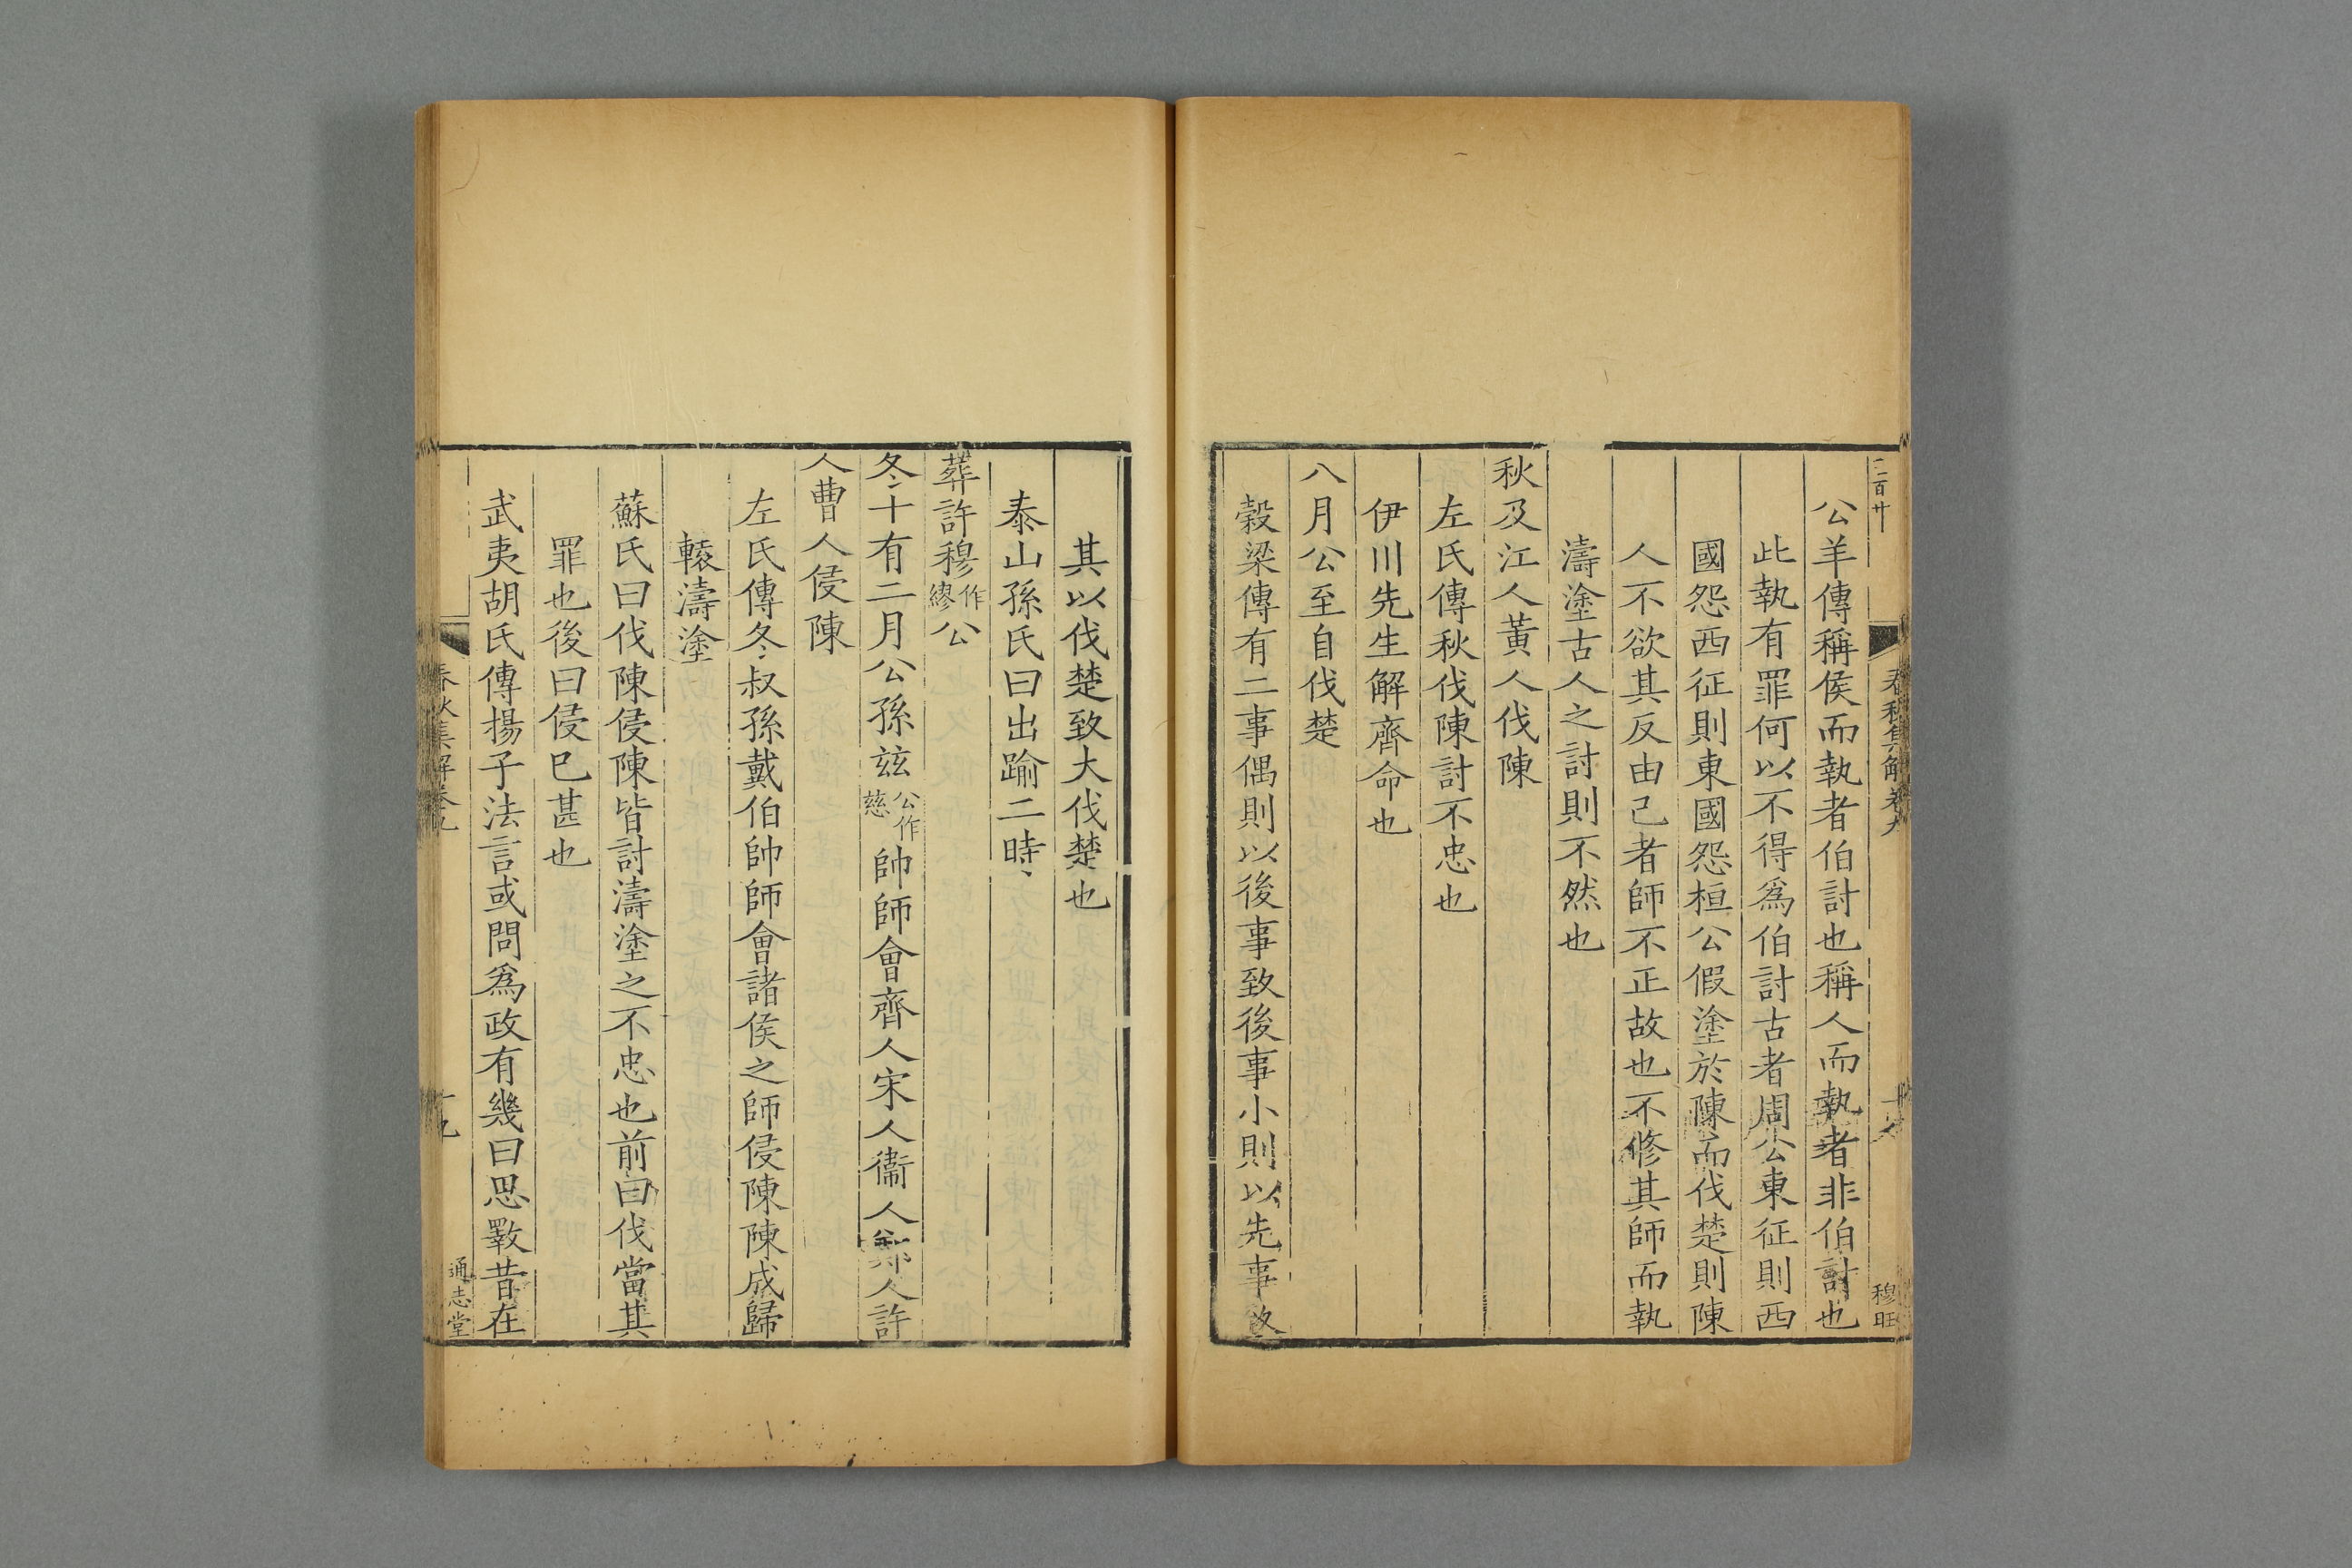 二百廿
春秋集解卷九
穆旺
公羊傳稱侯而執者伯討也稱人而執者非伯討也
此執有罪何以不得爲伯討古者周公東征則西
國怨西征則東國怨桓公假塗於陳而伐楚則陳
人不欲其反由己者師不正故也不脩其師而執
濤塗古人之討則不然也
秋及江人黃人伐陳
左氏傳秋伐陳討不忠也
伊川先生解齊命也
八月公至自伐楚
穀梁傳有二事偶則以後事致後事小則以先事致
其以伐楚致大伐楚也
泰山孫氏曰出踰二時
葬許穆作繆公
冬十有二月公孫兹公作慈帥師會齊人宋人衞人鄭人許
人曹人侵陳
左氏傳冬叔孫戴伯帥師會諸侯之師侵陳陳成歸
轅濤塗
蘇氏曰伐陳侵陳皆討濤塗之不忠也前曰伐當其
罪也後曰侵巳甚也
武夷胡氏傳揚子法言或問爲政有幾曰思斁昔在
春秋集解卷九
十九
通志堂